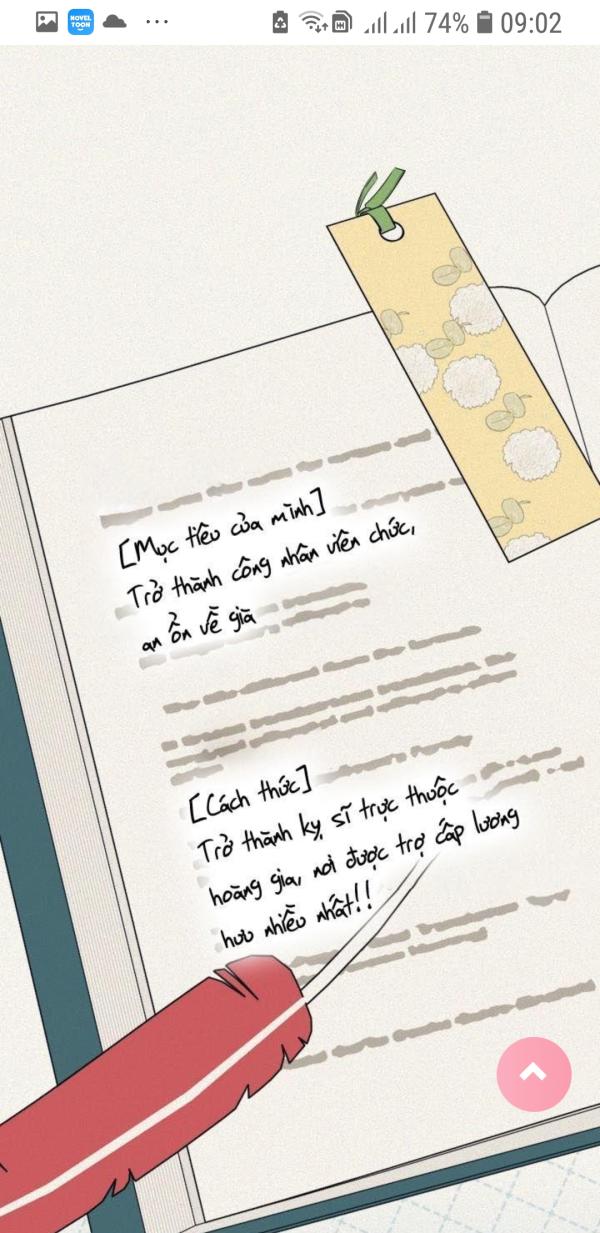 NOVEL
TOON
74% 09:02
[Mục tiêu của mình]
Trở thành công nhân viên chức,
an ổn về già
[Cách thức]
Trở thành kỵ sĩ trực thuộc
hoàng gia, nơi được trợ cấp lương
hưu nhiều nhất!!